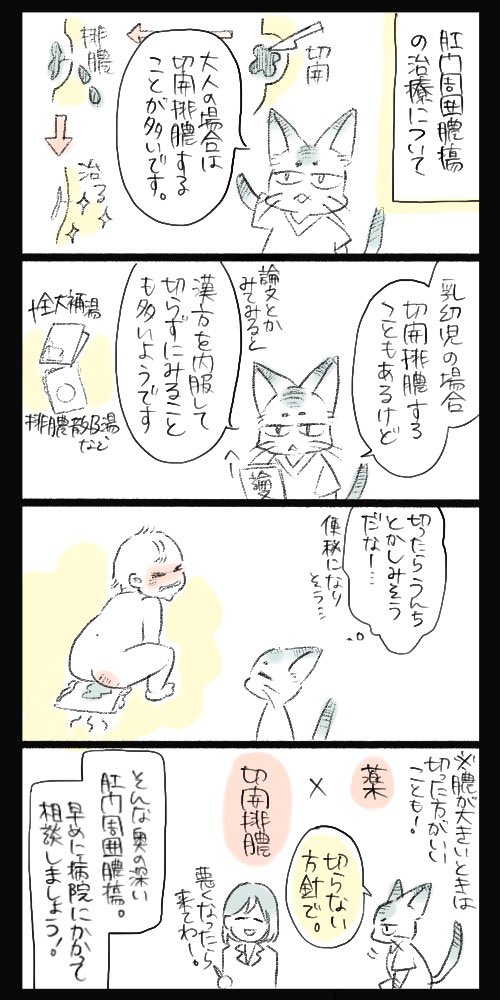 肛門周囲膿瘍
の治療について
切開
排膿
治る
大人の場合は
切開排膿する
ことが多いです。
乳幼児の場合
切開排膿する
こともあるけど
論文とか
みてみると
漢方を内服して
切らずにみること
も多いようです
十全大補湯
排膿散及湯
など
論文
切ったらうんち
とかしみそう
だな…
便秘になり
そう…
※膿が大きいときは
切った方がいい
ことも!
薬
×
切開排膿
切らない
方針で。
悪くなったら
来てねー!
そんな奥の深い
肛門周囲膿瘍。
早めに病院にかかって
相談しましょう!